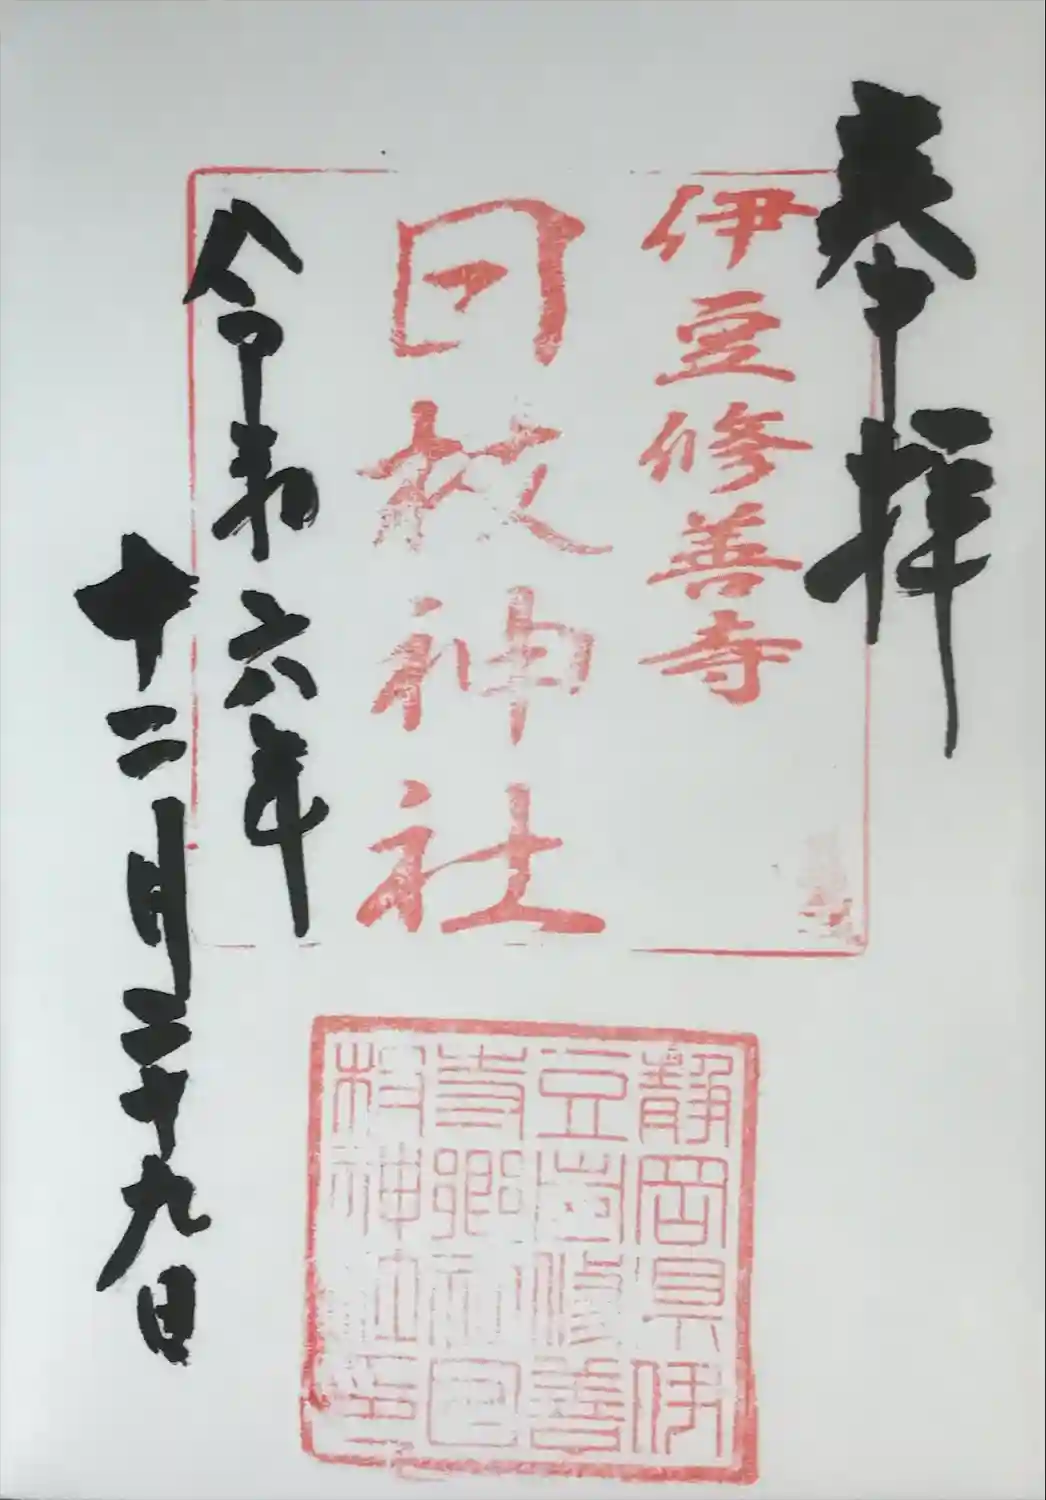 奉拝
伊豆修善寺
日枝神社
令和六年
十二月二十九日
静岡県伊
豆修善
寺郷社日
枝神社印